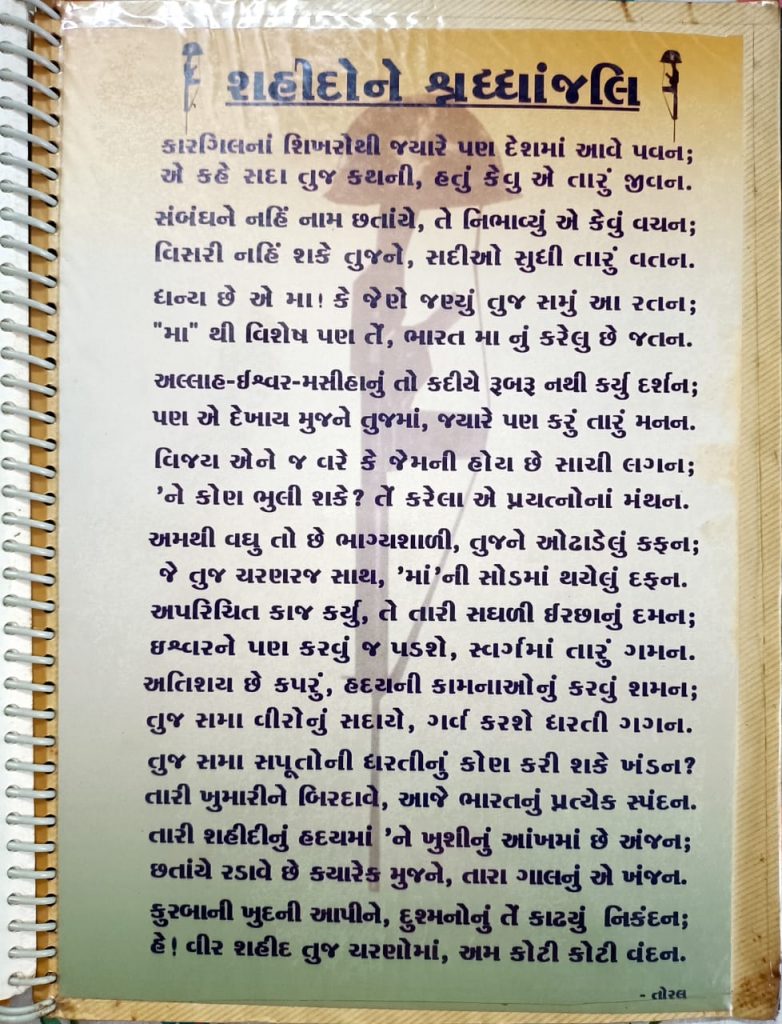 શહીદોને શ્રદ્ધાંજલિ
કારગિલનાં શિખરોથી જ્યારે પણ દેશમાં આવે પવન;
એ કહે સદા તુજ કથની, હતું કેવુ એ તારું જીવન.
સંબંધને નહિં નામ છતાંયે, તે નિભાવ્યું એ કેવું વચન;
વિસરી નહિં શકે તુજને, સદીઓ સુધી તારું વતન.
ધન્ય છે એ મા! કે જેણે જણ્યું તુજ સમું આ રતન;
"મા" થી વિશેષ પણ તેં, ભારત મા નું કરેલુ છે જતન.
અલ્લાહ-ઈશ્વર-મસીહાનું તો કદીયે રૂબરૂ નથી કર્યુ દર્શન;
પણ એ દેખાય મુજને તુજમાં, જ્યારે પણ કરું તારું મનન.
વિજય એને જ વરે કે જેમની હોય છે સાચી લગન;
'ને કોણ ભુલી શકે? તેં કરેલા એ પ્રયત્નોનાં મંથન.
અમથી વધુ તો છે ભાગ્યશાળી, તુજને ઓઢાડેલું કફન;
જે તુજ ચરણરજ સાથ, 'માં'ની સોડમાં થયેલું દફન.
અપરિચિત કાજ કર્યુ, તે તારી સઘળી ઈરછાનું દમન;
ઇશ્વરને પણ કરવું જ પડશે, સ્વર્ગમાં તારું ગમન.
અતિશય છે કપરું, હદયની કામનાઓનું કરવું શમન;
તુજ સમા વીરોનું સદાયે, ગર્વ કરશે ધરતી ગગન.
તુજ સમા સપૂતોની ધરતીનું કોણ કરી શકે ખંડન?
તારી ખુમારીને બિરદાવે, આજે ભારતનું પ્રત્યેક સ્પંદન.
તારી શહીદીનું હદયમાં 'ને ખુશીનું આંખમાં છે અંજન;
છતાંયે રડાવે છે કયારેક મુજને, તારા ગાલનું એ ખંજન.
કુરબાની ખુદની આપીને, દુશ્મનોનું તેં કાઢયું નિકંદન;
હે! વીર શહીદ તુજ ચરણોમાં, અમ કોટી કોટી વંદન.
- તોરલ